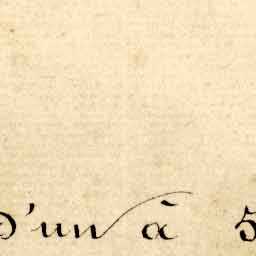 d'un à 5